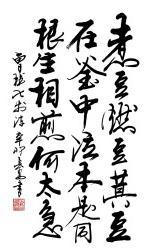 煮豆燃豆其豆
在釜中泣本是同
根生相煎何太急
曹植七步诗辛卯